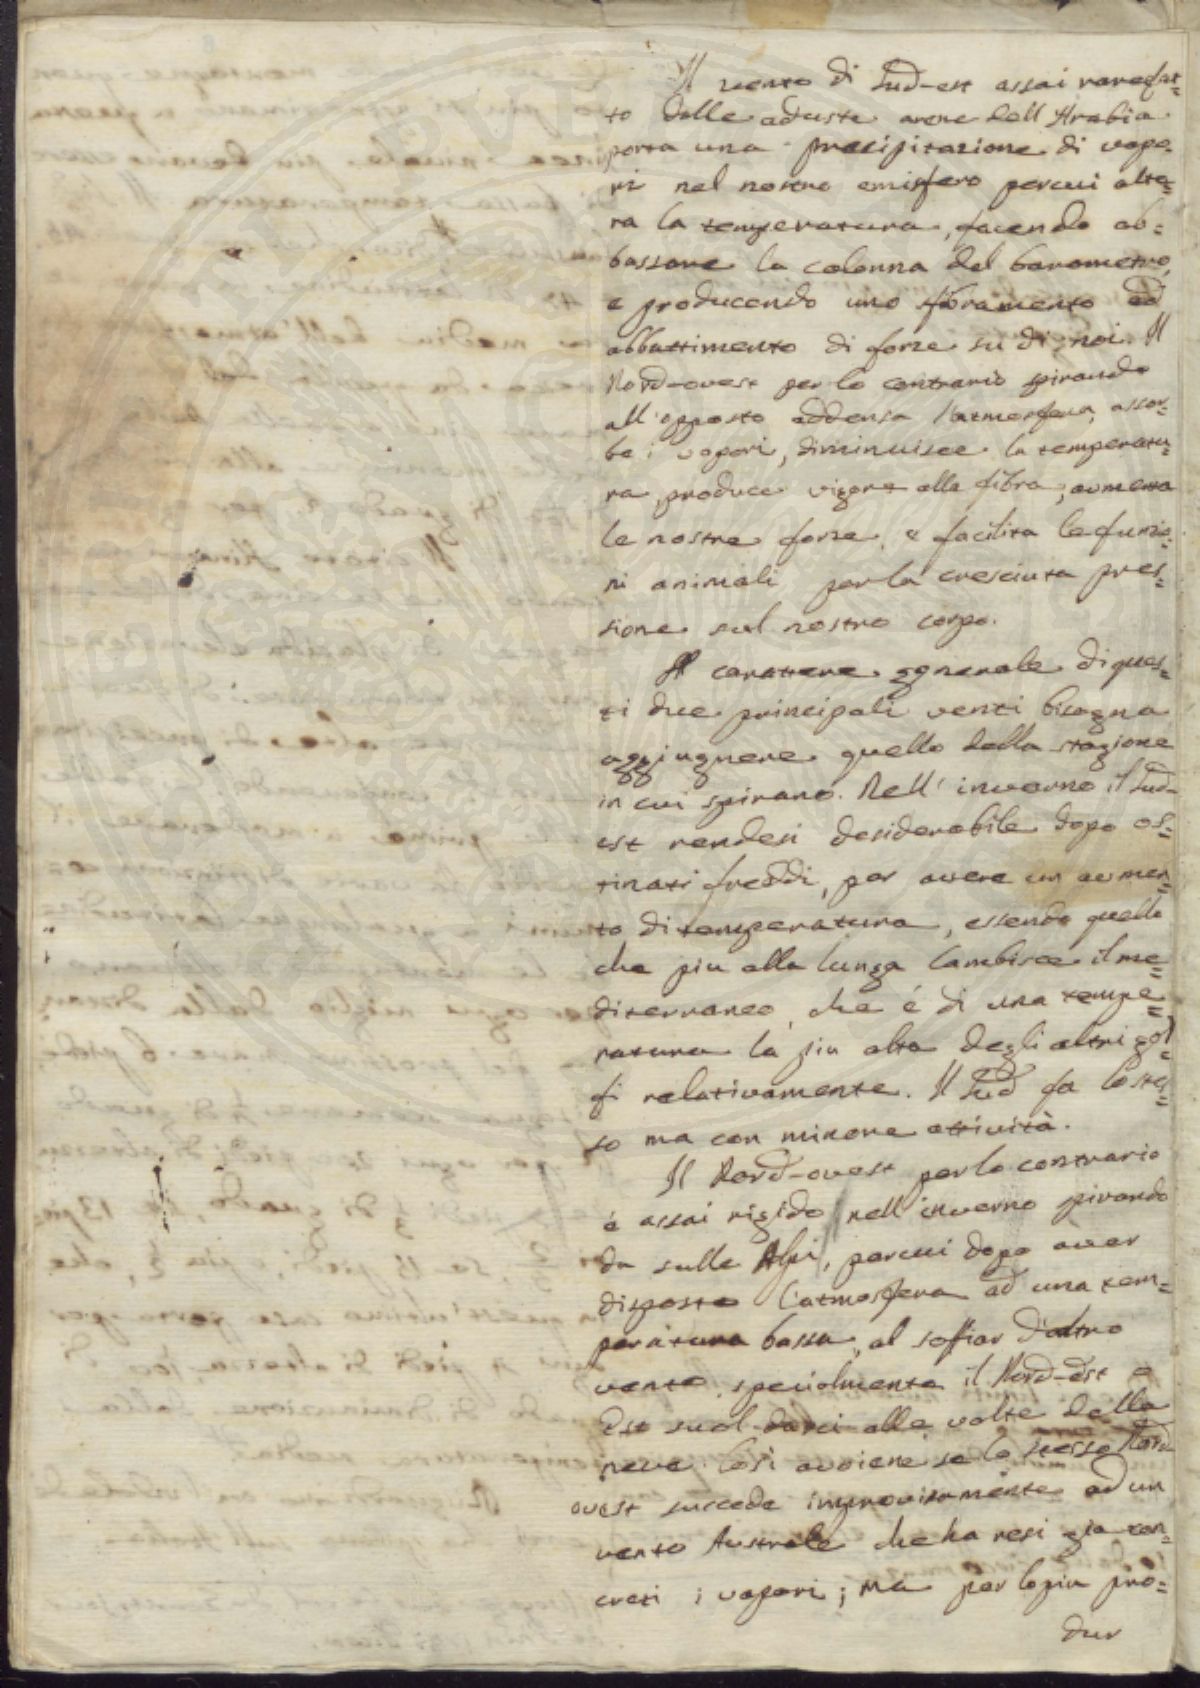 Il vento di Sud-est assai rarefat=
to dalle aduste arene dell'Arabia
porta una precipitazione di vapo=
ri nel nostro emisfero percui alte=
ra la temperatura, facendo ab=
bassare la colonna del barometro,
e producendo uno sfibramento ed
abbattimento di forze su di noi. Il
Nord-ovest per lo contrario spirando
all'opposto addensa l'atmosfera, assor=
be i vapori, diminuisce la temperatu=
ra, produce vigore alla fibra, aumenta
le nostre forze, e facilita le funzio=
ni animali per la cresciuta pres=
sione sul nostro corpo.
Al carattere generale di ques=
ti due principali venti bisogna
aggiugnere quello della stagione
in cui spirano. Nell'inverno il Sud-
est rendesi desiderabile dopo os=
tinati freddi, per avere un aumen=
to di temperatura, essendo quello
che piu alla lunga lambisce il me=
diterraneo, che é di una tempe=
ratura la piu alta degli altri gol=
fi relativamente. Il Sud fa lo stes=
so ma con minore attività.
Il Nord-ovest per lo contrario
é assai rigido nell'inverno spirando
da sulle Alpi, percui dopo aver
disposto l'atmosfera ad una tem=
peratura bassa, al soffiar d'altro
vento, specialmente il Nord-est e
Est suol darci alle volte della
neve. Così avviene se lo stesso Nord
ovest succede improvisamente ad un
vento Australe che ha resi gia con=
creti i vapori; ma per lopiu pro=
dur